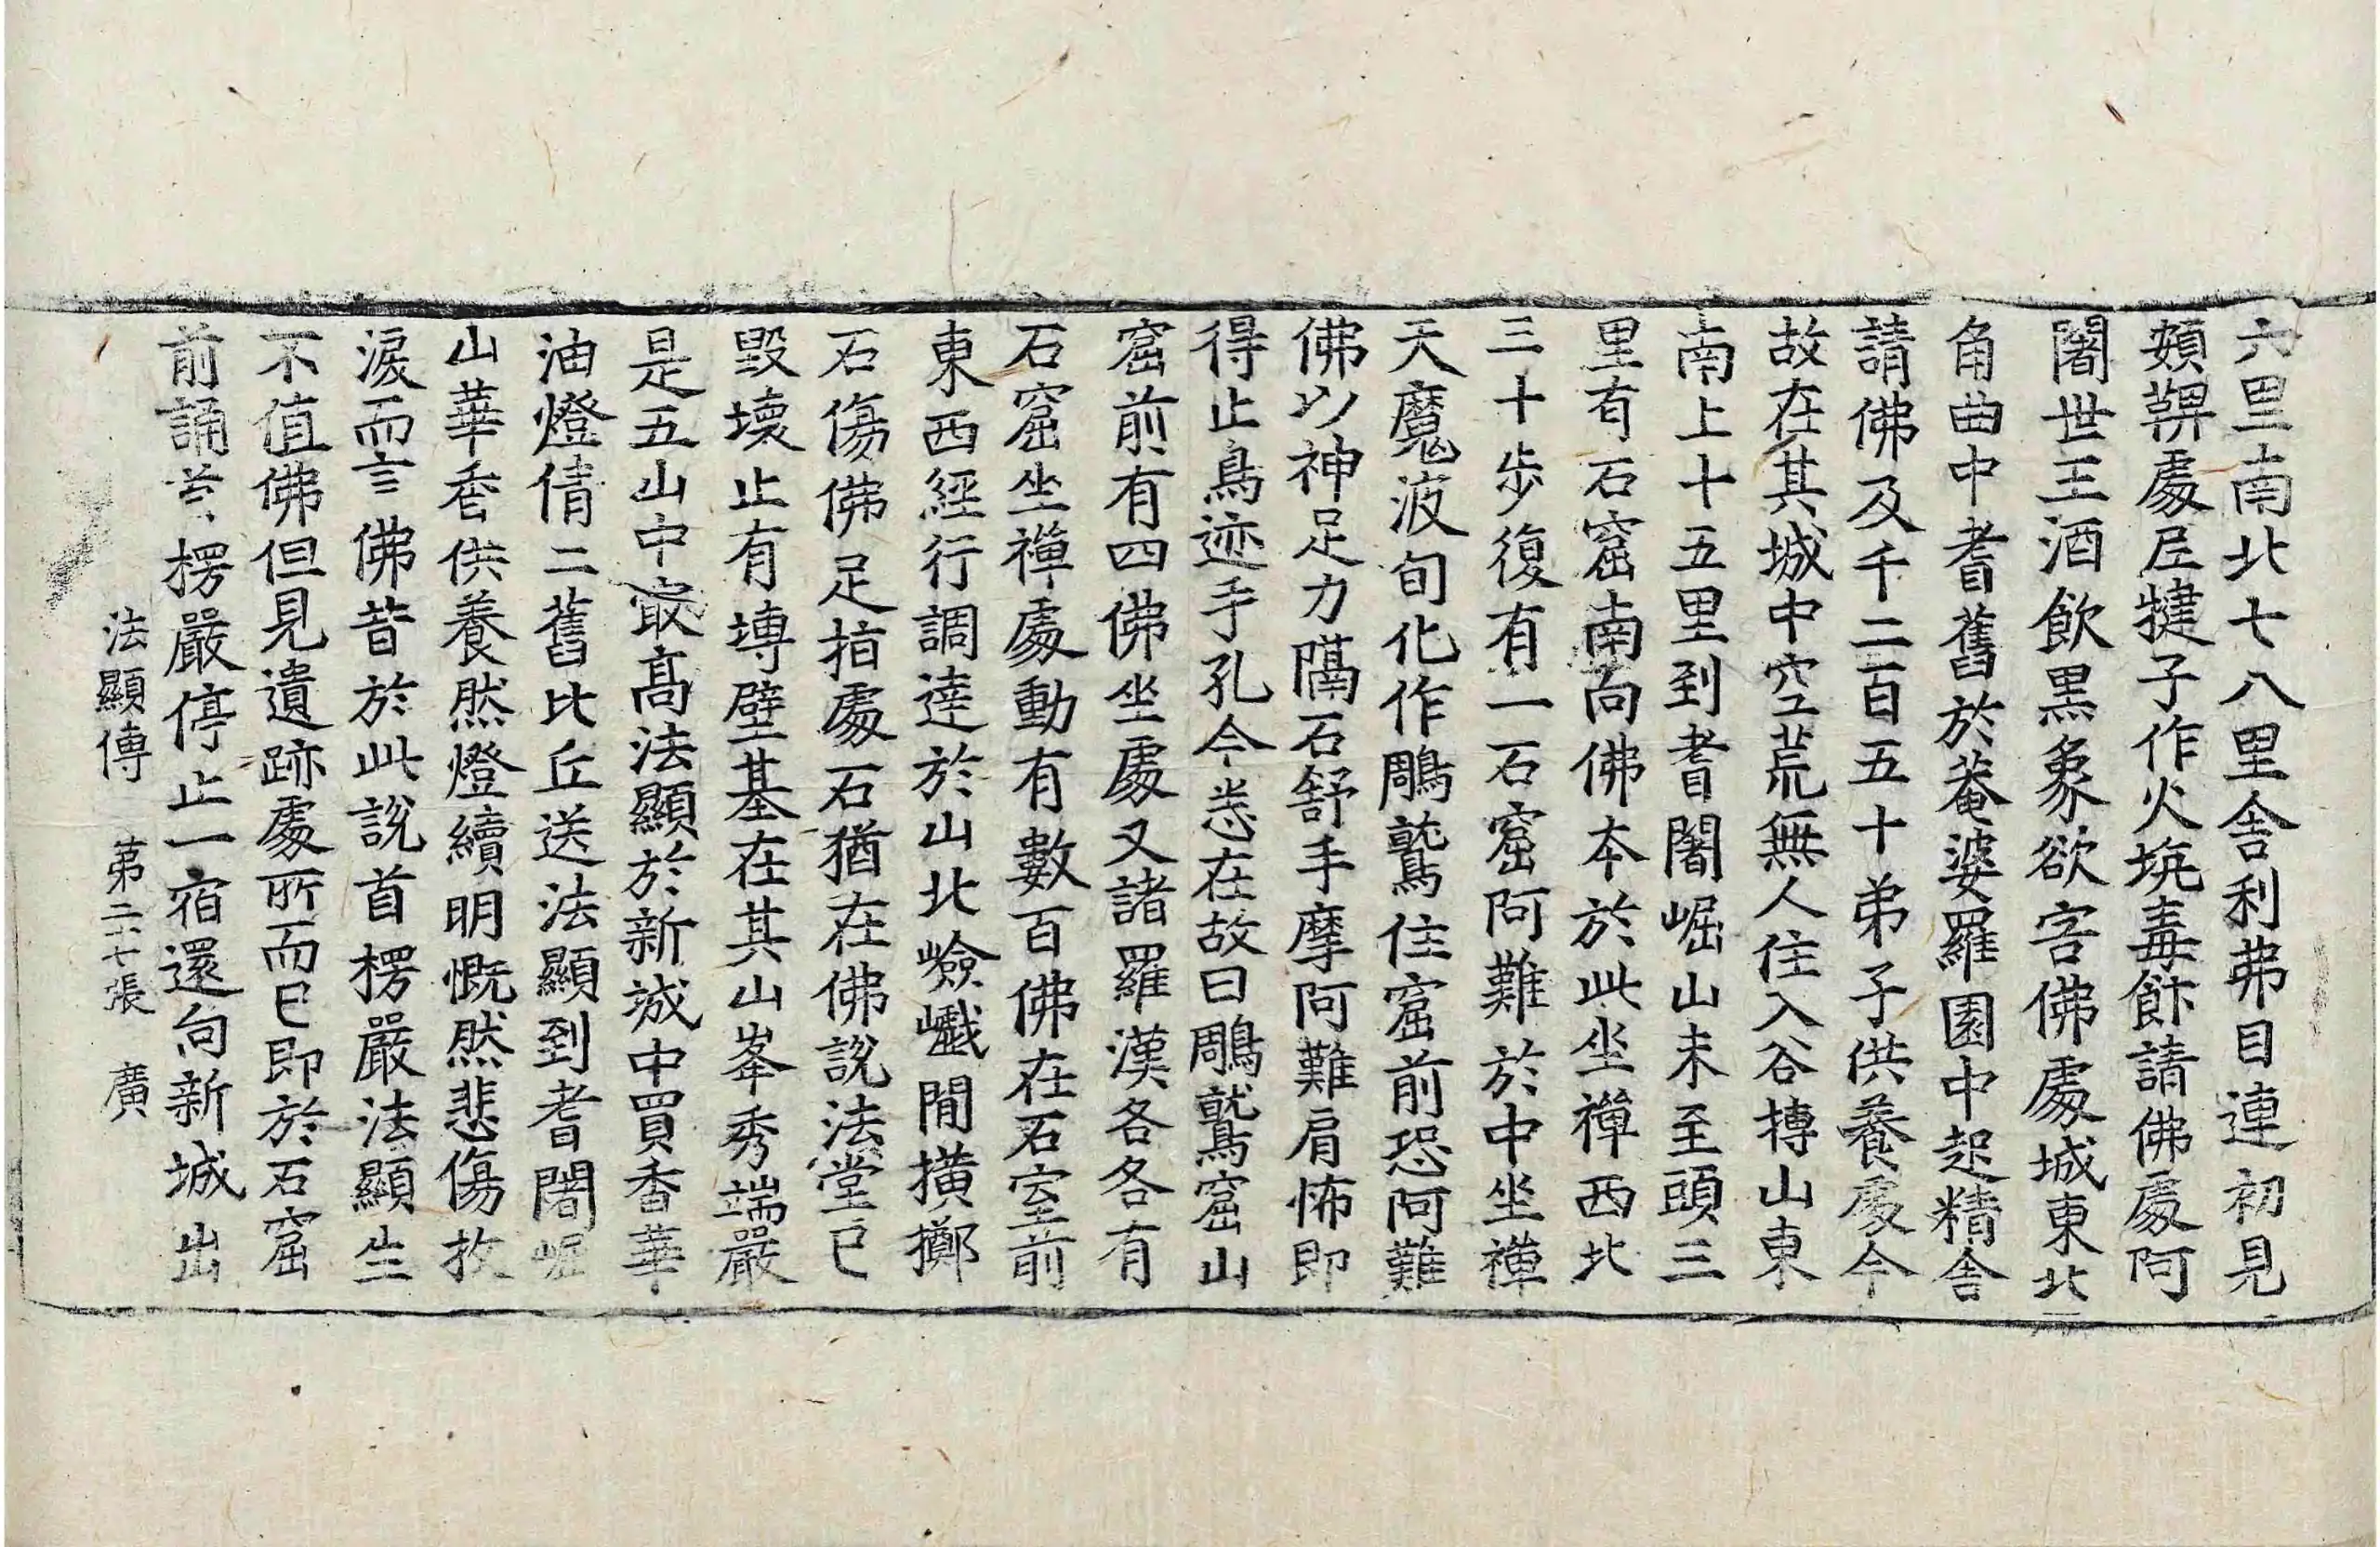 六里南北七八里舍利弗目連初見
頞鞞處尼犍子作火坑毒飰請佛處阿
闍世王酒飲黒象欲害佛處城東北
角曲中耆舊於菴婆羅園中起精舍
請佛及千二百五十弟子供養處今
故在其城中空荒無人住入谷搏山東
南上十五里到耆闍崛山未至頭三
里有石窟南向佛本於此坐禪西北
三十步復有一石窟阿難於中坐禪
天魔波旬化作鵰鷲住窟前恐阿難
佛以神足力隔石舒手摩阿難肩怖即
得止鳥迹手孔今悉在故曰鵰鷲窟山
窟前有四佛坐處又諸羅漢各各有
石窟坐禪處動有數百佛在石室前
東西經行調達於山北嶮巇間擲
石傷佛足指處石猶在佛說法堂已
毀壞止有塼壁基在其山峯秀端嚴
是五山中㝡髙法顯於新城中買香華
油燈倩二舊比丘送法顯到耆闍崛
山華香供養然燈續明慨然悲傷抆
淚而言佛昔於此說首楞嚴法顯生
不值佛但見遺跡處所而已即於石窟
前誦首楞嚴停止一宿還向新城出
法顯傳 第二十七張 廣